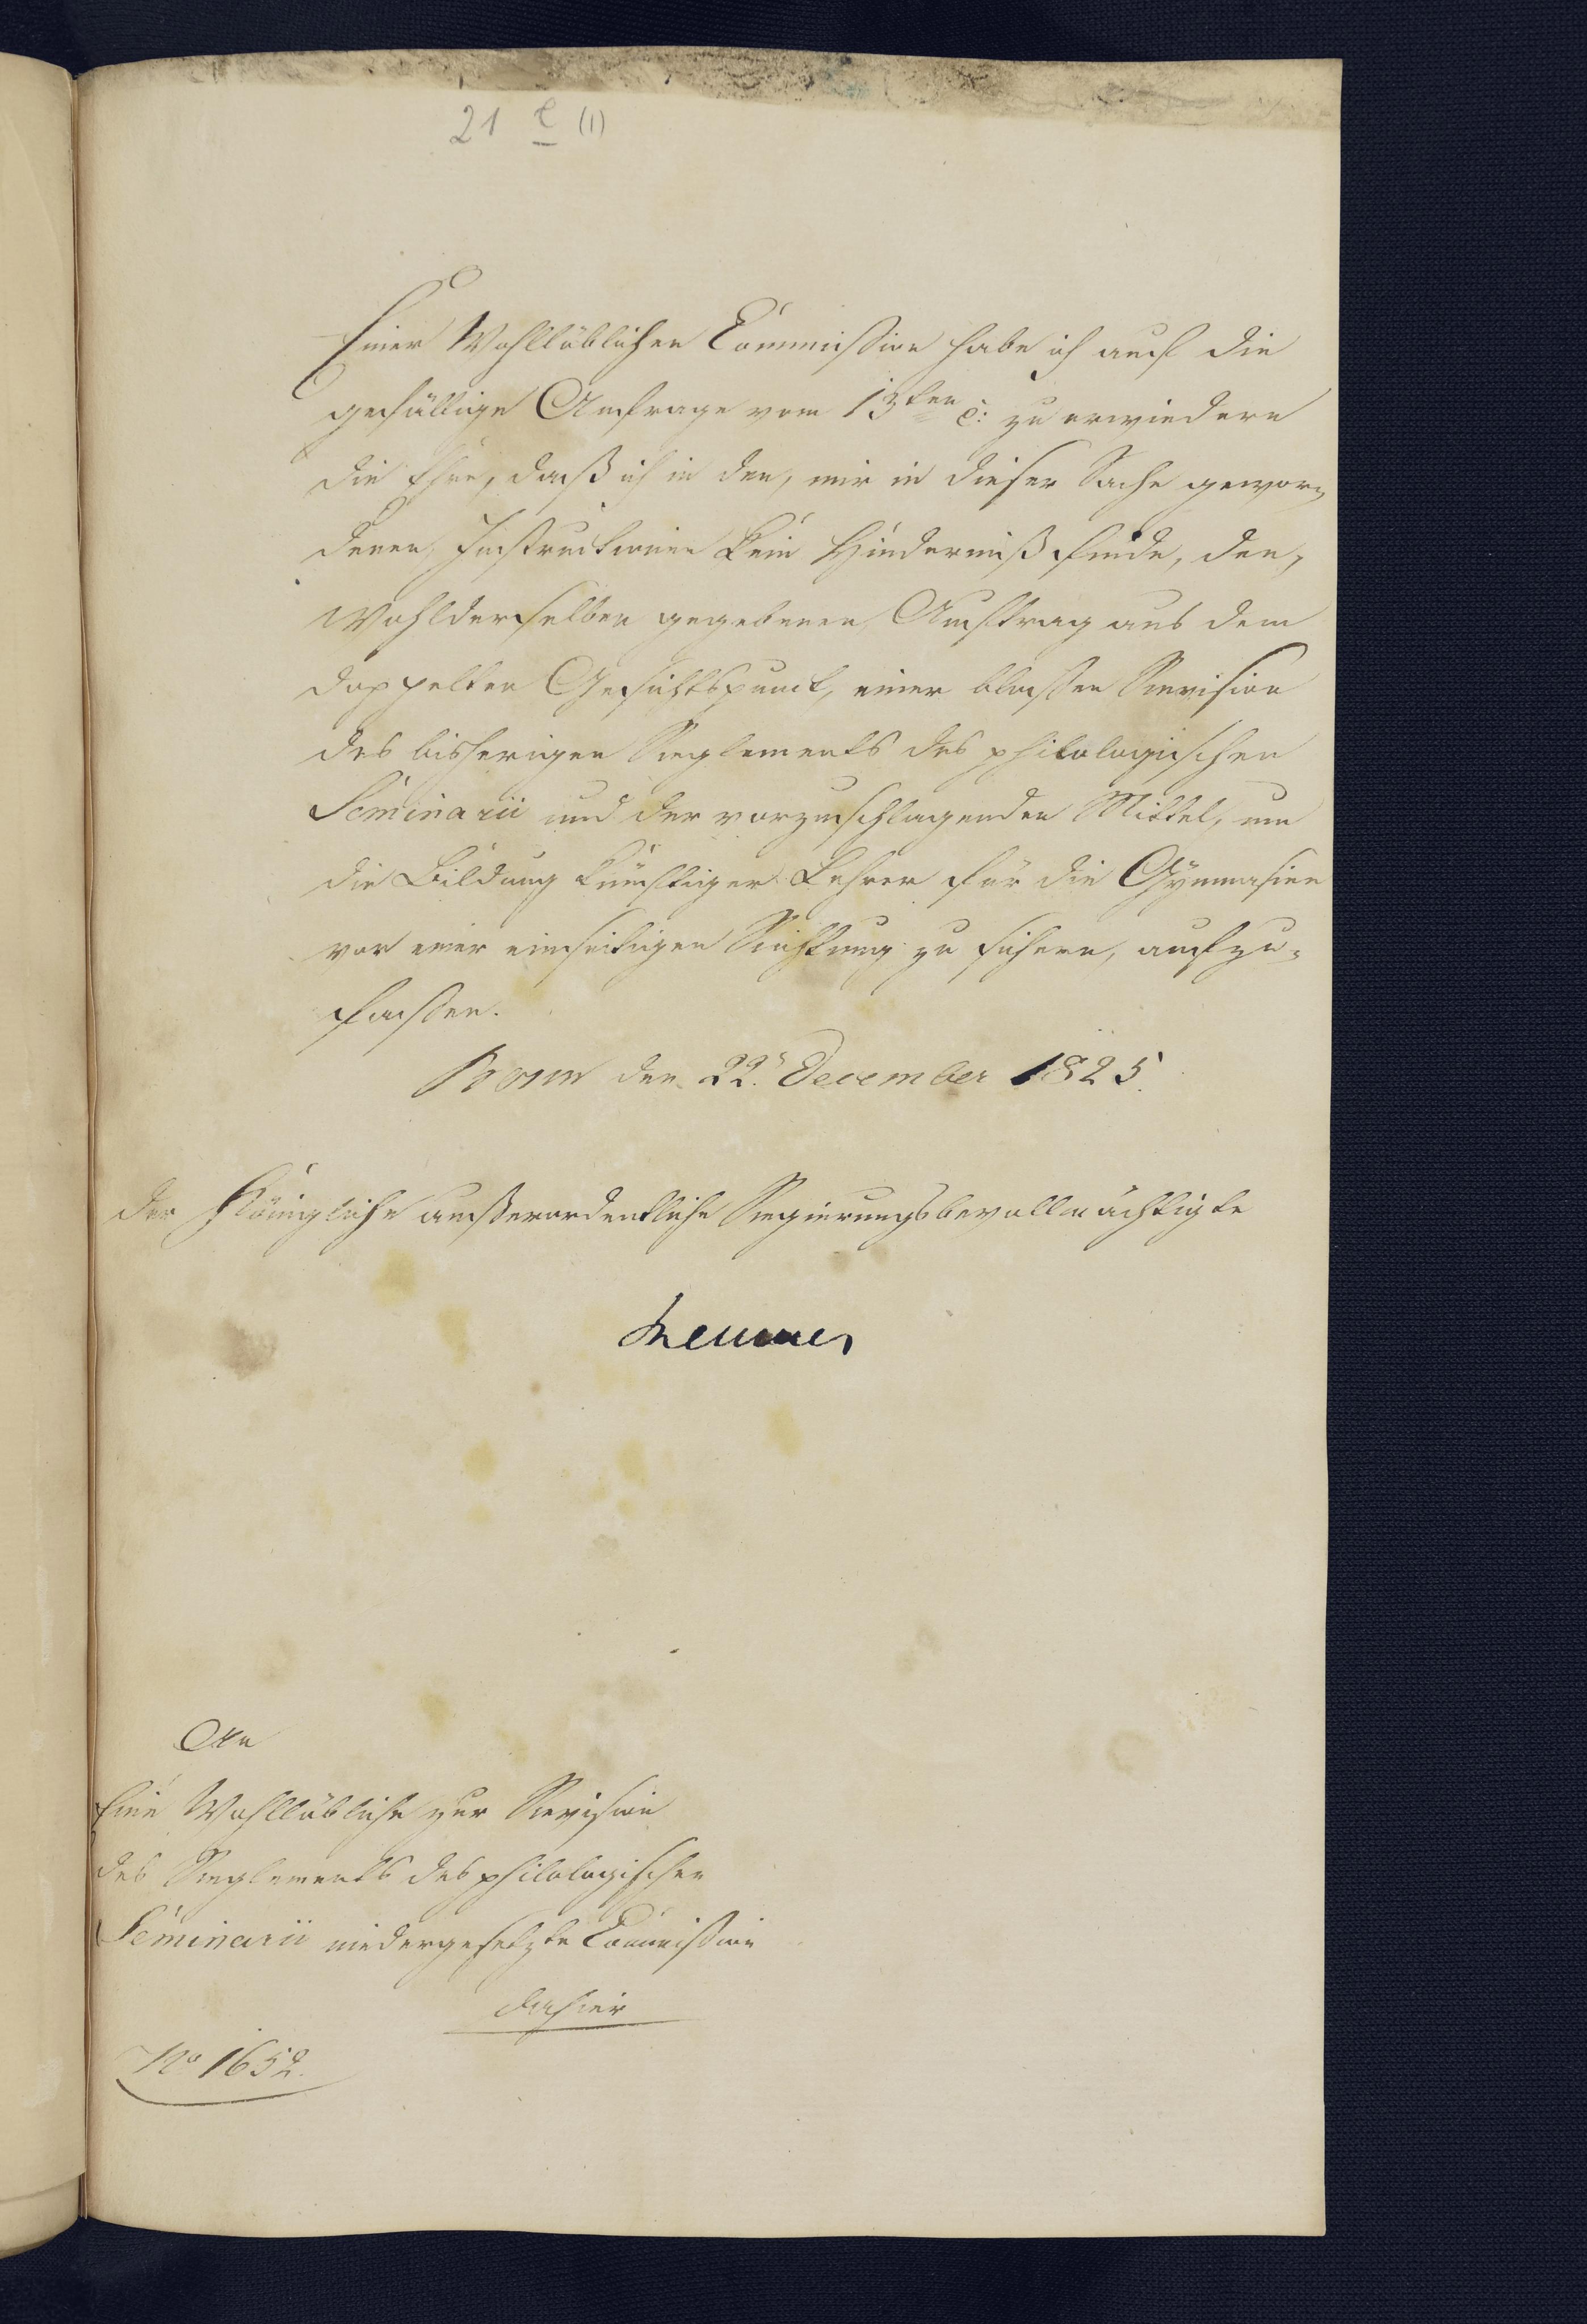 21 e (1)
Einer Wohllöblichen Commission habe ich auf die
gefällige Anfrage vom 13ten c: zu erwiedern
die Ehre, daß ich in den, mir in dieser Sache gewor=
denen, Instructionen kein Hinderniß finde, den,
Wohlderselben gegebenen, Auftrag aus dem
doppelten Gesichtspunct, einer bloßen Revision
des bisherigen Reglements des philologischen
Seminarii und der vorzuschlagenden Mittel, um
die Bildung künftiger Lehrer für die Gymnasien
vor einer einseitigen Richtung zu sichern, aufzu=
fassen.
Bonn den 22. December 1825.
Der Königliche außerordentliche Regierungsbevollmächtigte
An
Eine Wohllöbliche zur Revision
des Reglements des philologischen
Seminarii niedergesetzte Commission
dahier
No 1652.